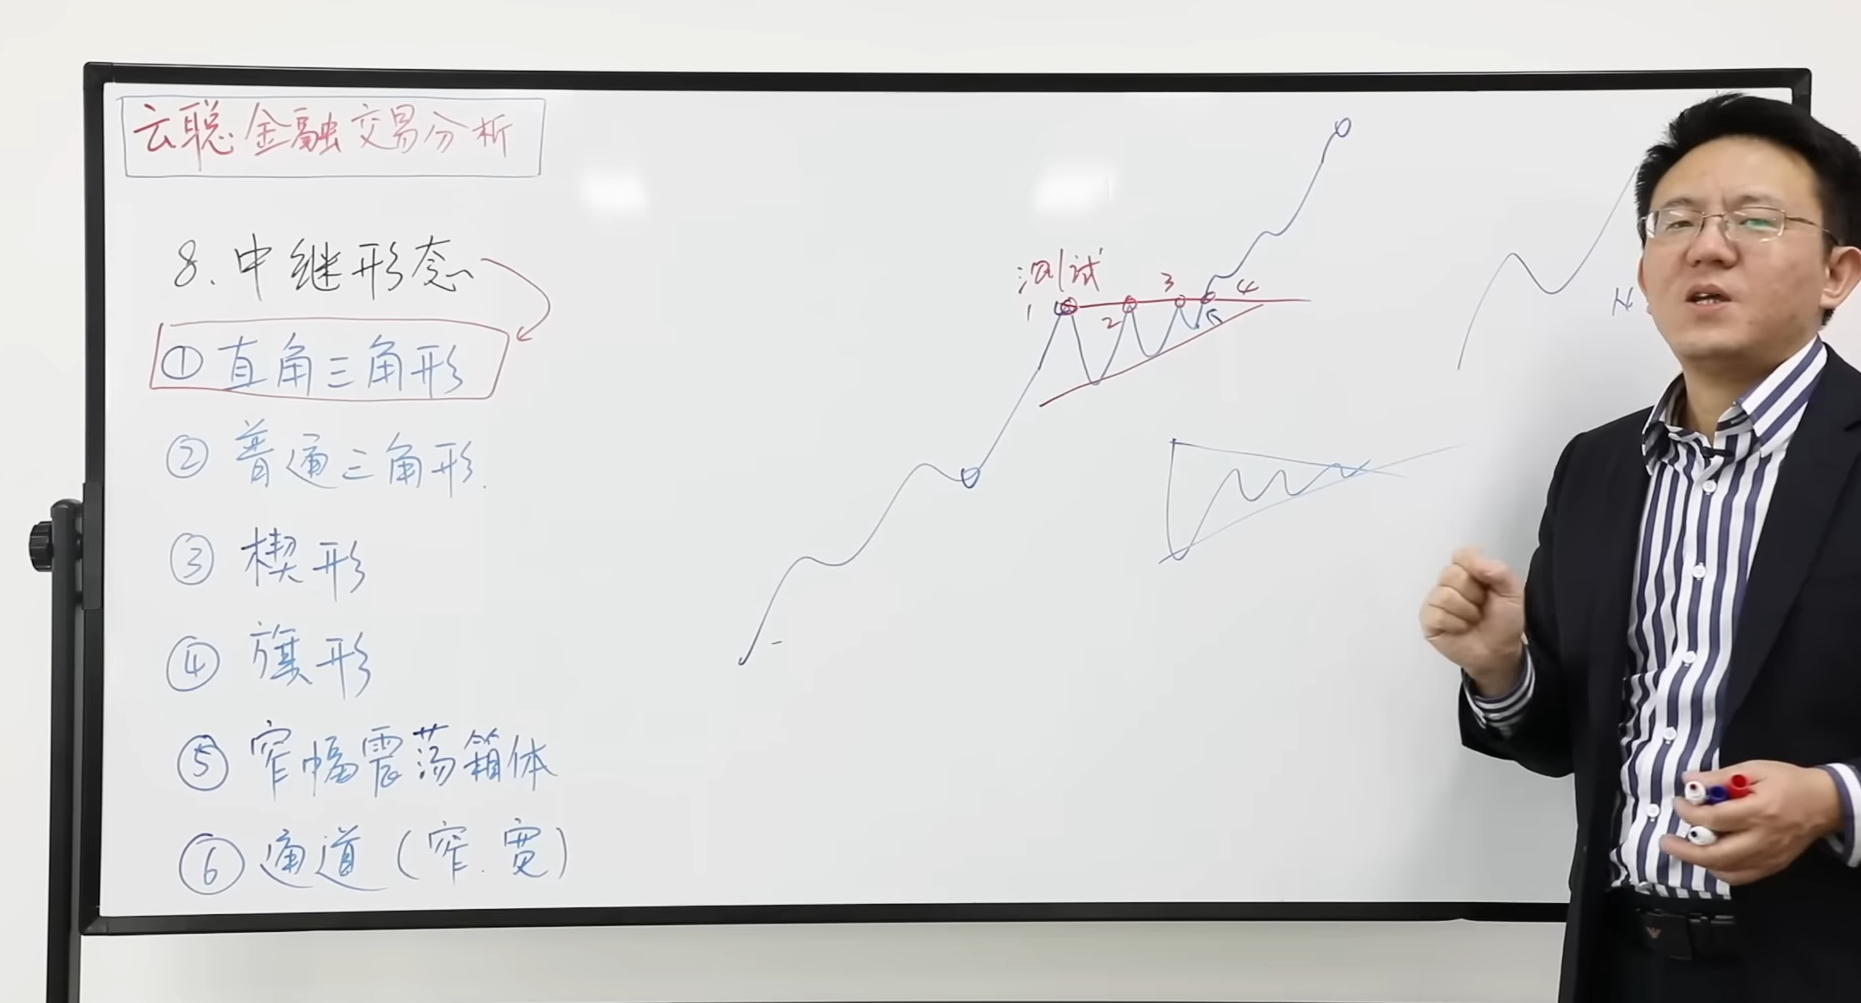 云聪金融交易分析
8.中继形态
① 直角三角形
② 普通三角形.
③ 楔形
④ 旗形
⑤ 窄幅震荡箱体
⑥ 通道(窄.宽)
测试
1
2
3
4